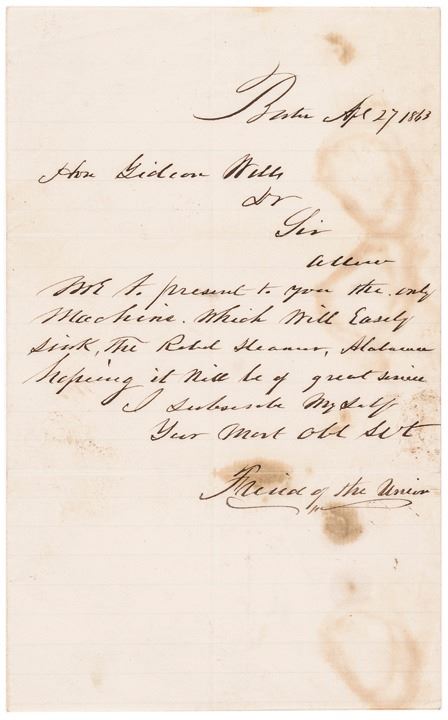 Boston Apl 27 1863
Hon Gideon Wells
Dr
Sir
allow
Me to present to you the only
Machine. Which Will Easely
Sink, The Rebel Steamer, Alabama
hopeing it Will be of great service
I subscribe My Self
Your Most Obt Svt
Friend of the Union